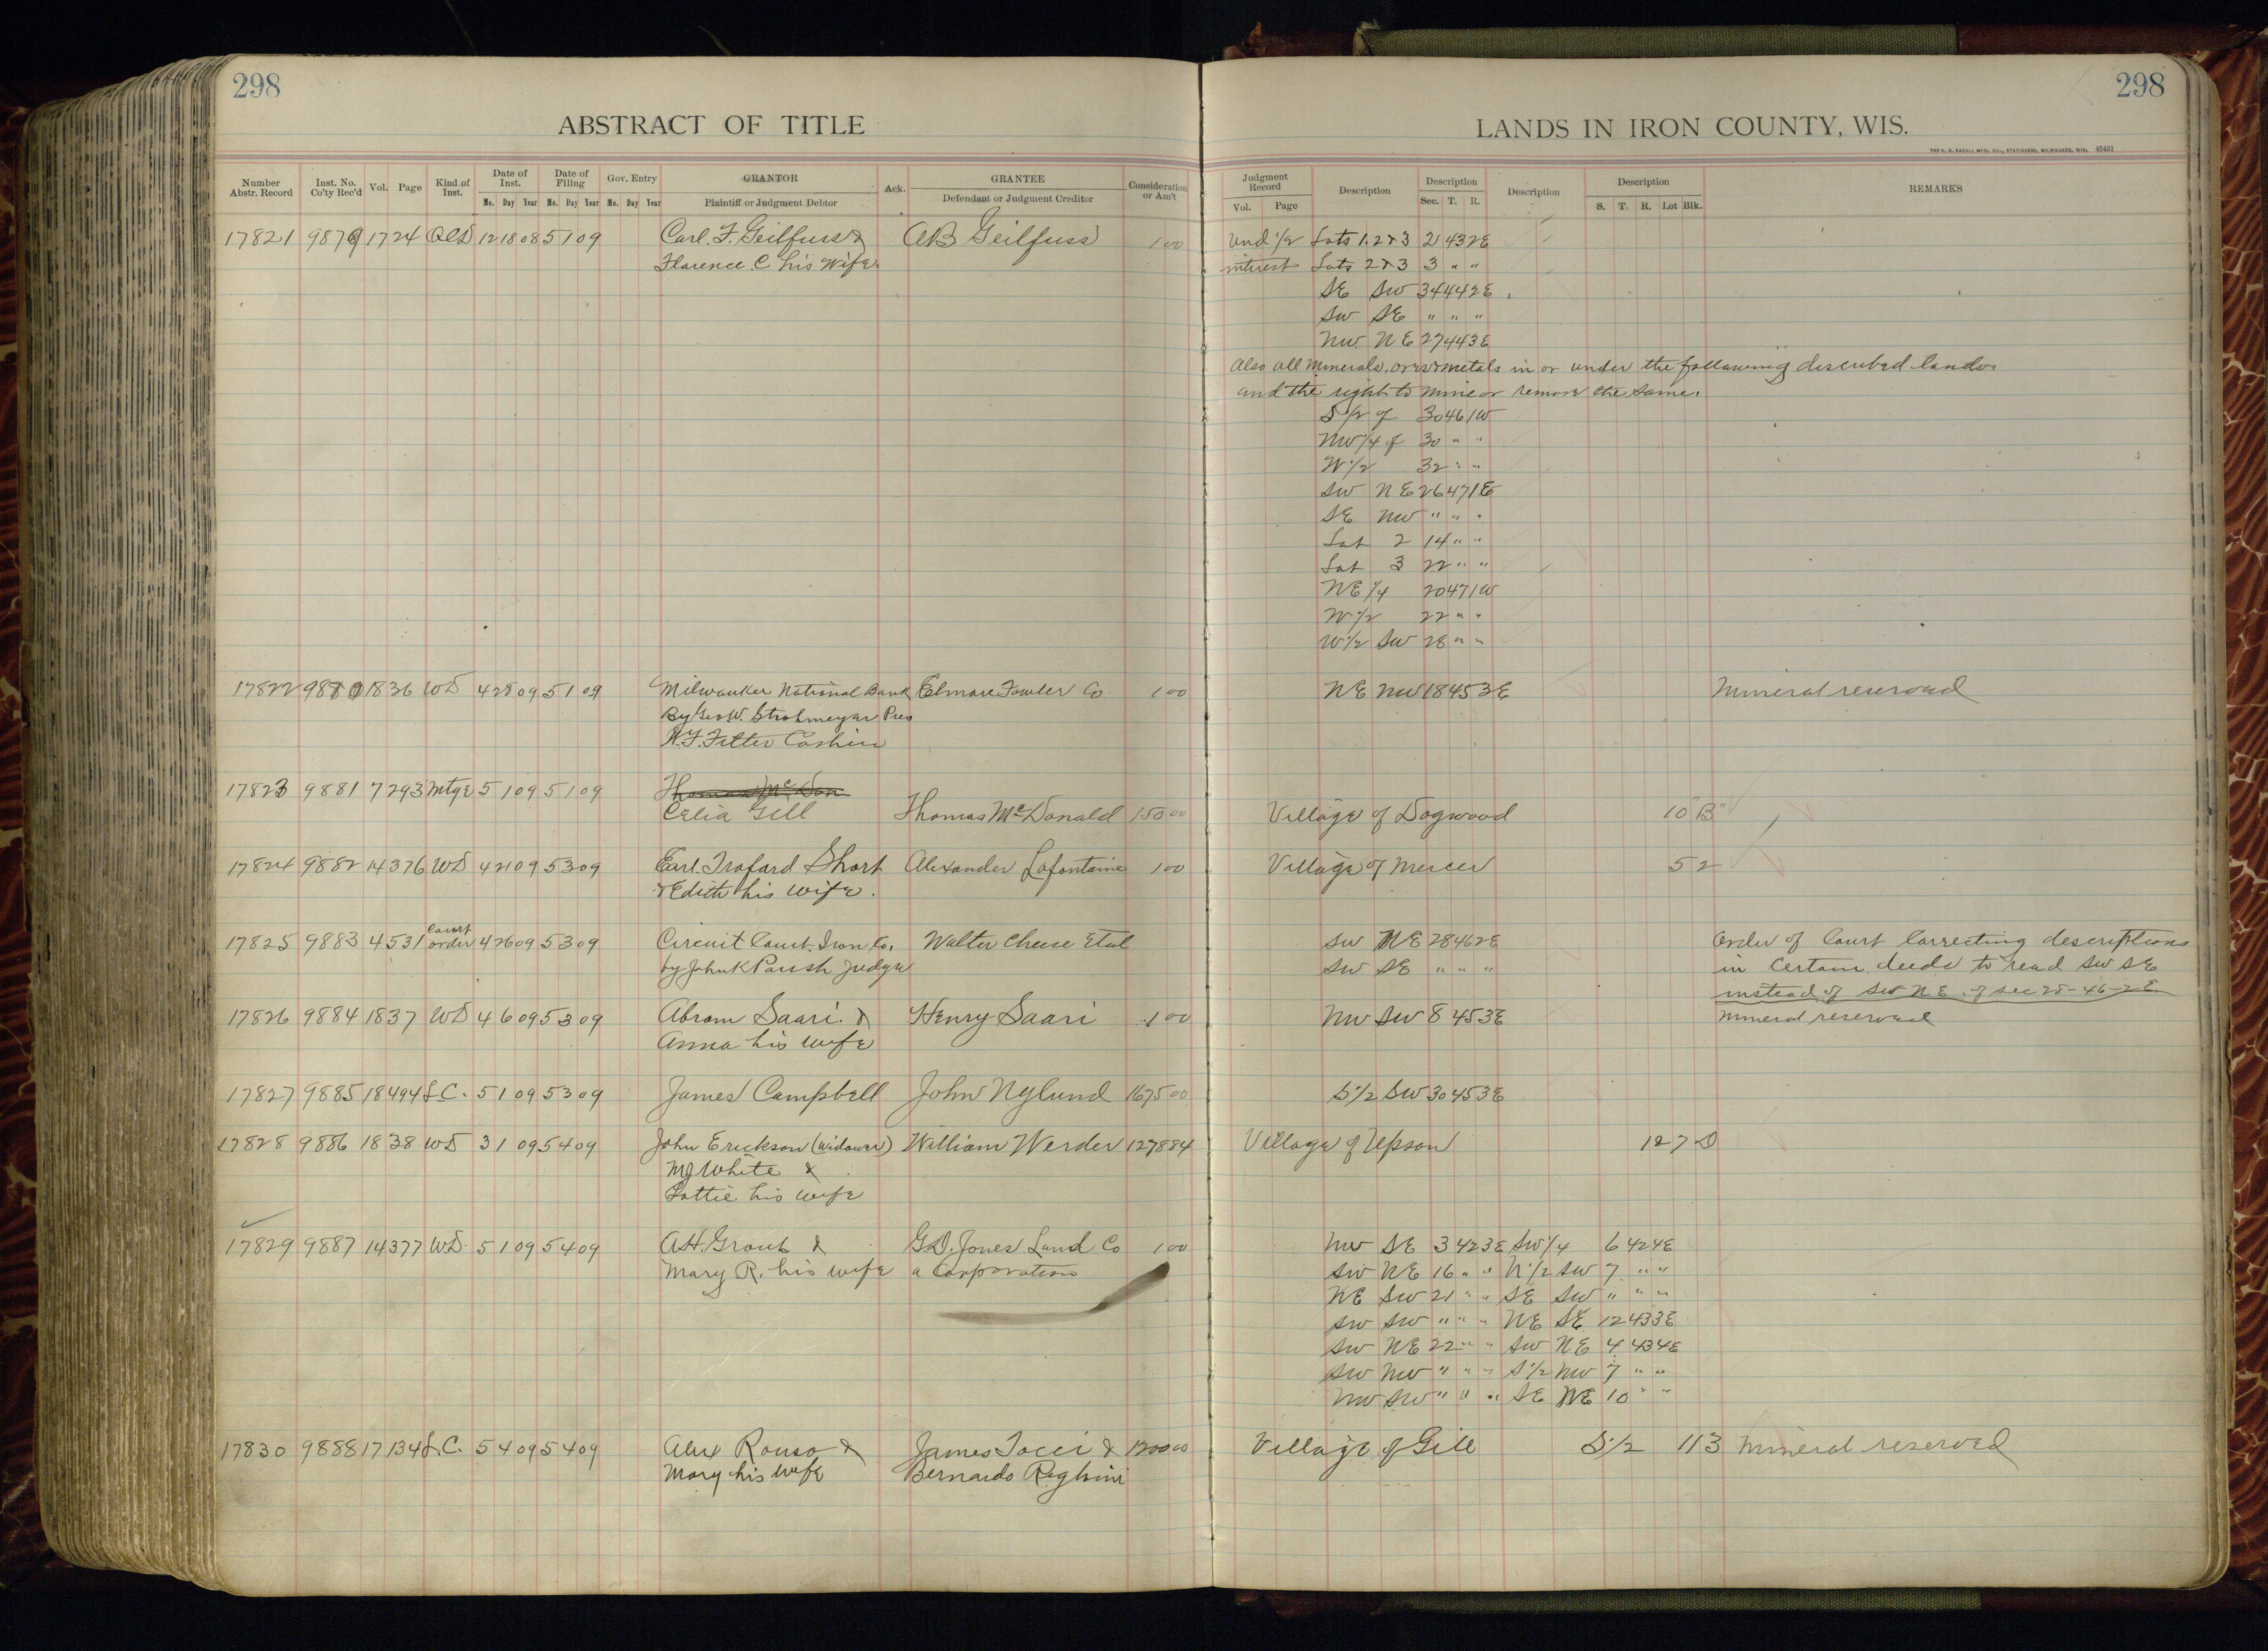 298
298
ABSTRACT OF TITLE
LANDS IN IRON COUNTY, WIS.
THE H. G. RAZALL MFG. CO., STATIONERS, MILWAUKEE, WIS. 45431
Number Abstr. Record | Inst. No. Co'ty Rec'd | Vol. | Page | Kind of Inst. | Date of Inst. Mo. Day Year | Date of Filing Mo. Day Year | Gov. Entry Mo. Day Year | GRANTOR Plaintiff or Judgment Debtor | Ack. | GRANTEE Defendant or Judgment Creditor | Consideration or Am't
Judgment Record Vol. Page | Description | Description Sec. T. R. | Description | Description S. T. R. Lot Blk. | REMARKS
17821 9879 17 24 QCD 12 18 08 5 1 09 Carl. F. Geilfuss & AB Geilfuss 1 00 Und 1/2 Lots 1.2 & 3 2 43 2E
Florence C his Wife. interest Lots 2 & 3 3 " "
SE SW 34 44 2E
SW SE " " "
NW NE 27 44 3E
Also all Minerals, ores & metals in or under the following described lands
and the right to mine or remove the same.
S 1/2 of 30 46 1W
NW 1/4 of 30 " "
W 1/2 32 " "
SW NE 26 47 1E
SE NW " " "
Lot 2 14 " "
Lot 3 22 " "
NE 1/4 20 47 1W
W 1/2 22 " "
W 1/2 SW 28 " "
17822 9880 18 36 WD 4 28 09 5 1 09 Milwaukee National Bank Elmore Fowler Co. 1 00 NE NW 18 45 3E Mineral reserved
By Geo W. Strohmeyer Pres
Cashier
17823 9881 7 293 Mtge 5 1 09 5 1 09 Thomas McDon
Celia Gill Thomas McDonald 150 00 Village of Dogwood 10 "B"
17824 9882 14 376 WD 4 21 09 5 3 09 Earl. Traford Short Alexander Lafontaine 1 00 Village of Mercer 5 2
& Edith his wife.
17825 9883 4 531 Court order 4 26 09 5 3 09 Circuit Court Iron Co. Walter Cheese Etal SW NE 28 46 2E Order of Court Correcting descriptions
by John K Parish Judge SW SE " " " in Certain deeds to read SW SE
instead of SW NE of sec 28-46-2E
17826 9884 18 37 WD 4 6 09 5 3 09 Abram Saari. & Henry Saari 1 00 NW SW 8 45 3E Mineral reserved
Anna his wife
17827 9885 18 494 L.C. 5 1 09 5 3 09 James Campbell John Nylund 1675 00 S 1/2 SW 30 45 3E
17828 9886 18 38 WD 3 1 09 5 4 09 John Erickson (widower) William Werder 1278 84 Village of Upson 12 7 D
MJ White &
Lottie his wife
17829 9887 14 377 WD. 5 1 09 5 4 09 A.H. Grout & G.D. Jones Land Co 1 00 NW SE 3 42 3E SW 1/4 6 42 4E
Mary R. his wife a Corporation SW NE 16 " " N 1/2 SW 7 " "
NE SW 21 " " SE SW " " "
SW SW " " " NE SE 12 43 3E
SW NE 22 " " SW NE 4 43 4E
SW NW " " " S 1/2 NW 7 " "
NW SW " " " SE NE 10 " "
17830 9888 17 134 L.C. 5 4 09 5 4 09 Alex Rouso & James Tocci & 1200 00 Village of Gile S 1/2 11 3 Mineral reserved
Mary his wife Bernardo Righini